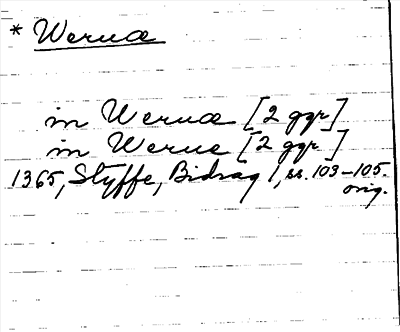 * Werna
in Werna [2 ggr]
in Werne [2 ggr]
1365, Styffe, Bidrag 1, ss. 103-105.
orig.